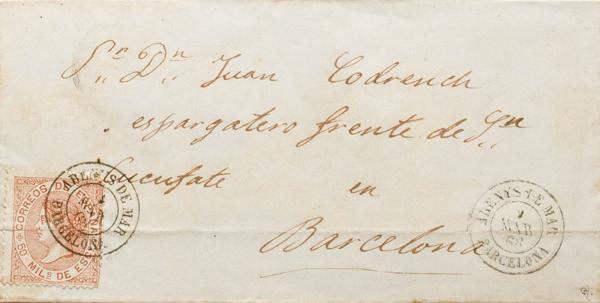 Sr. Dn. Juan Codrench
espargatero frente de Sn
Cucufate en
Barcelona
CORREOS DE
50 MILS DE ES
ARENYS DE MAR
BARCELONA
ARENYS DE MAR
7
MAR
68
BARCELONA